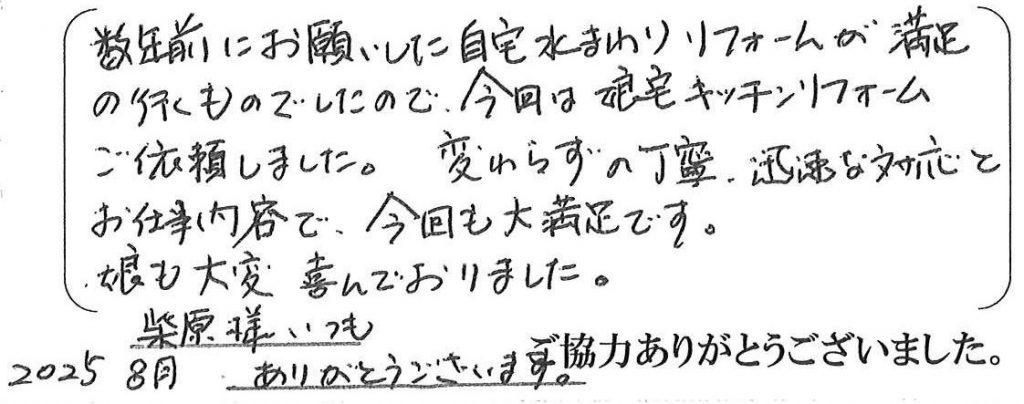 数年前にお願いした自宅水まわりリフォームが満足
の行くものでしたので、今回は娘宅キッチンリフォーム
ご依頼しました。 変わらずの丁寧、迅速な対応と
お仕事内容で、今回も大満足です。
娘も大変喜んでおりました。
柴原様いつも
ありがとうございます。
2025 8月
ご協力ありがとうございました。